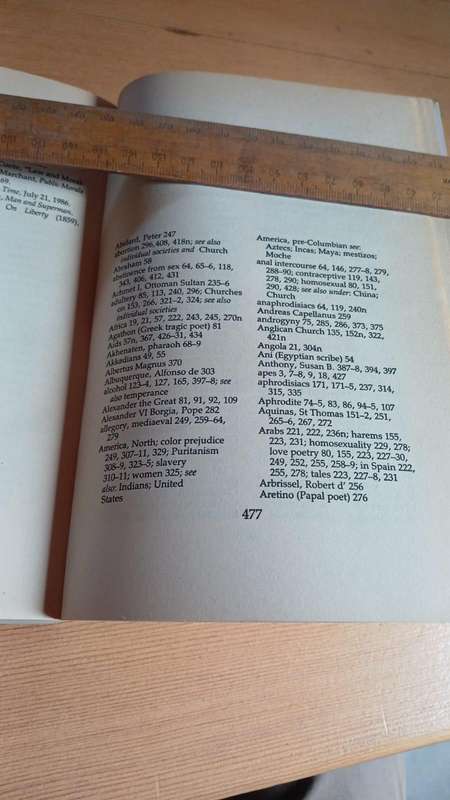 Marchant, Public Morals
69.
Time, July 21, 1986.
Man and Superman.
On Liberty (1859),
Abelard, Peter 247
abortion 296, 408, 418n; see also
individual societies and Church
Abraham 58
abstinence from sex 64, 65–6, 118,
343, 406, 412, 431
Achmet I, Ottoman Sultan 235–6
adultery 85, 113, 240, 296; Churches
on 153, 266, 321–2, 324; see also
individual societies
Africa 19, 21, 57, 222, 243, 245, 270n
Agathon (Greek tragic poet) 81
Aids 37n, 367, 426–31, 434
Akhenaten, pharaoh 68–9
Akkadians 49, 55
Albertus Magnus 370
Albuquerque, Alfonso de 303
alcohol 123–4, 127, 165, 397–8; see
also temperance
Alexander the Great 81, 91, 92, 109
Alexander VI Borgia, Pope 282
allegory, mediaeval 249, 259–64,
279
America, North; color prejudice
249, 307–11, 329; Puritanism
308–9, 323–5; slavery
310–11; women 325; see
also: Indians; United
States
America, pre-Columbian see:
Aztecs; Incas; Maya; mestizos;
Moche
anal intercourse 64, 146, 277–8, 279,
288–90; contraceptive 119, 143,
278, 290; homosexual 80, 151,
290, 428; see also under: China;
Church
anaphrodisiacs 64, 119, 240n
Andreas Capellanus 259
androgyny 75, 285, 286, 373, 375
Anglican Church 135, 152n, 322,
421n
Angola 21, 304n
Ani (Egyptian scribe) 54
Anthony, Susan B. 387–8, 394, 397
apes 3, 7–8, 9, 18, 427
aphrodisiacs 171, 171–5, 237, 314,
315, 335
Aphrodite 74–5, 83, 86, 94–5, 107
Aquinas, St Thomas 151–2, 251,
265–6, 267, 272
Arabs 221, 222, 236n; harems 155,
223, 231; homosexuality 229, 278;
love poetry 80, 155, 223, 227–30,
249, 252, 255, 258–9; in Spain 222,
255, 278; tales 223, 227–8, 231
Arbrissel, Robert d' 256
Aretino (Papal poet) 276
477